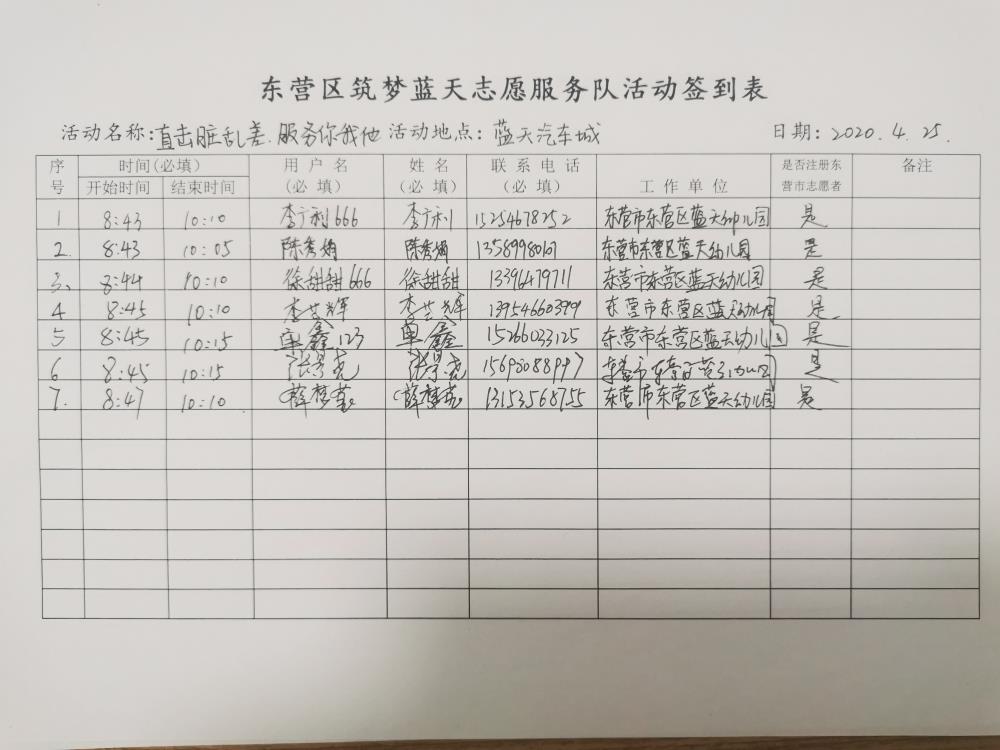 东营区筑梦蓝天志愿服务队活动签到表
活动名称:直击脏乱差.服务你我他 活动地点: 蓝天汽车城 日期: 2020.4.25.
序号 时间(必填) 开始时间 结束时间 用户名(必填) 姓名(必填) 联系电话(必填) 工作单位 是否注册东营市志愿者 备注
1 8:43 10:10 李广利666 李广利 15254678252 东营市东营区蓝天幼儿园 是
2. 8:43 10:05 陈秀娟 陈秀娟 东营市东营区蓝天幼儿园 是
3、 8:44 10:10 徐甜甜666 徐甜甜 13396479711 东营市东营区蓝天幼儿园 是
4 8:45 10:10 李芸辉 李芸辉 13954660399 东营市东营区蓝天幼儿园 是.
5 8:45 10:15 单鑫123 单鑫 15266033125 东营市东营区蓝天幼儿园 是
6 8:45 10:15 东营市东营区蓝天幼儿园 是
7. 8:47 10:10 薛梦 薛梦 13153568755 东营市东营区蓝天幼儿园 是